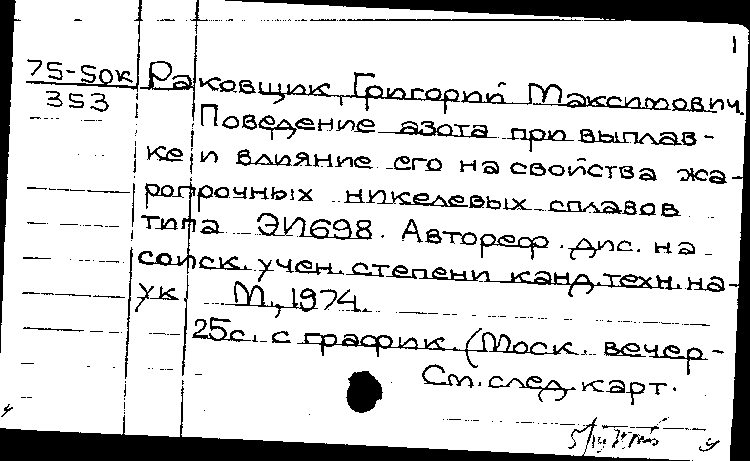 1
75-50к Раковщик, Григорий Максимович.
353
Поведение азота при выплав-
ке и влияние его на свойства жа-
ропрочных никелевых сплавов
типа ЭИ698. Автореф. дис. на
соиск. учен. степени канд. техн. на-
ук. М., 1974.
25с. с график. (Моск. вечер-
См. след. карт.